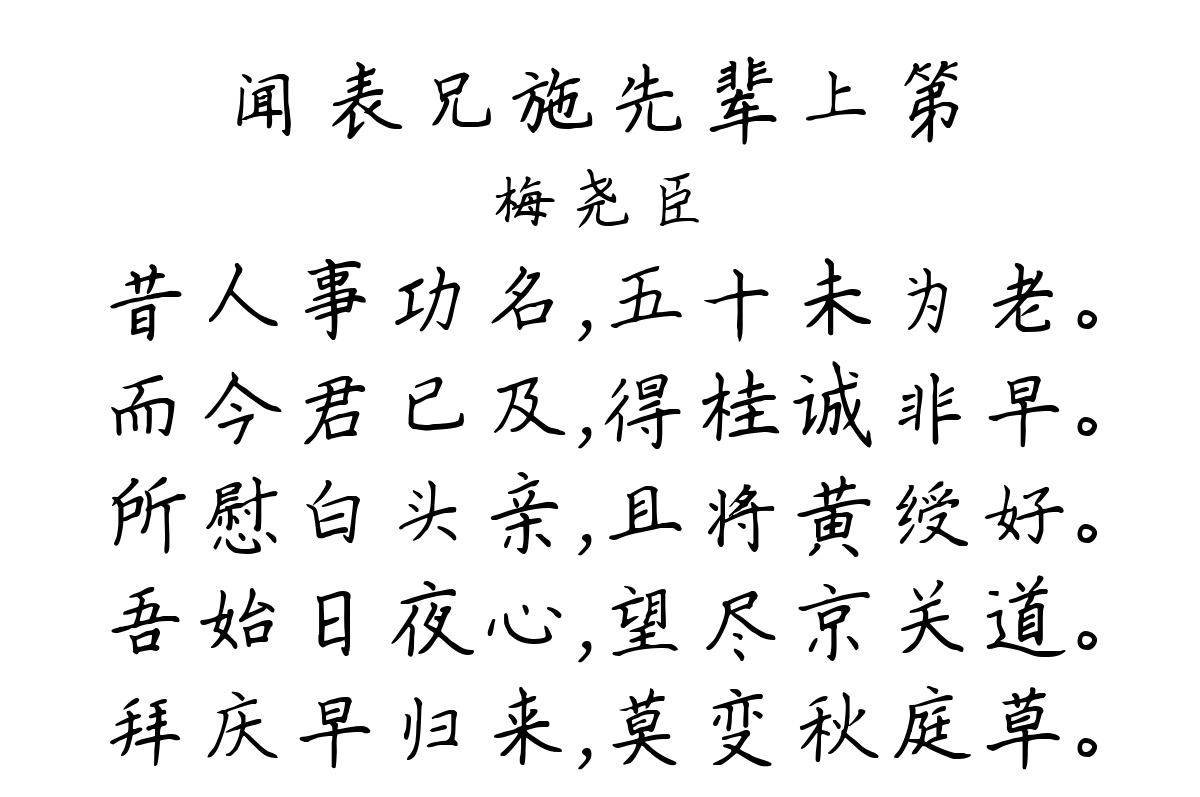 闻表兄施先辈上第
梅尧臣
昔人事功名,五十未为老。
而今君已及,得桂诚非早。
所慰白头亲,且将黄绶好。
吾始日夜心,望尽京关道。
拜庆早归来,莫变秋庭草。